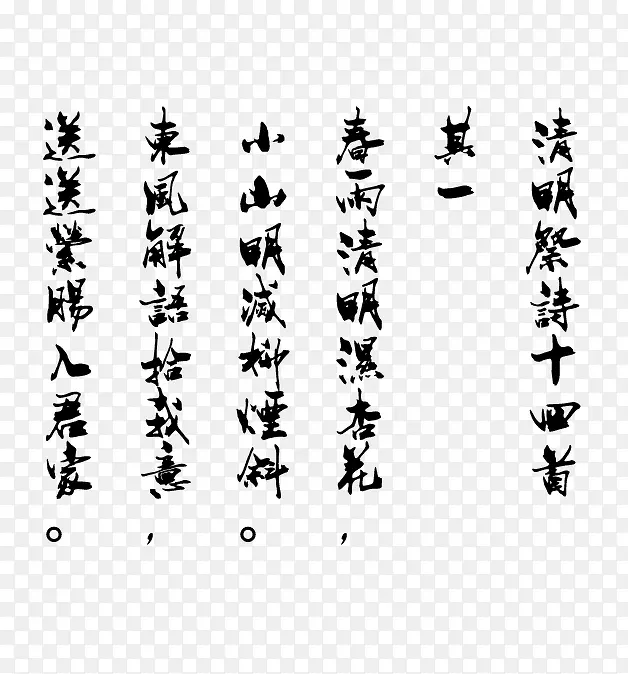 清明祭詩十四首
其一
春雨清明濕杏花，
小山明滅柳煙斜。
東風解語拾我意，
送送縈腸入君家。